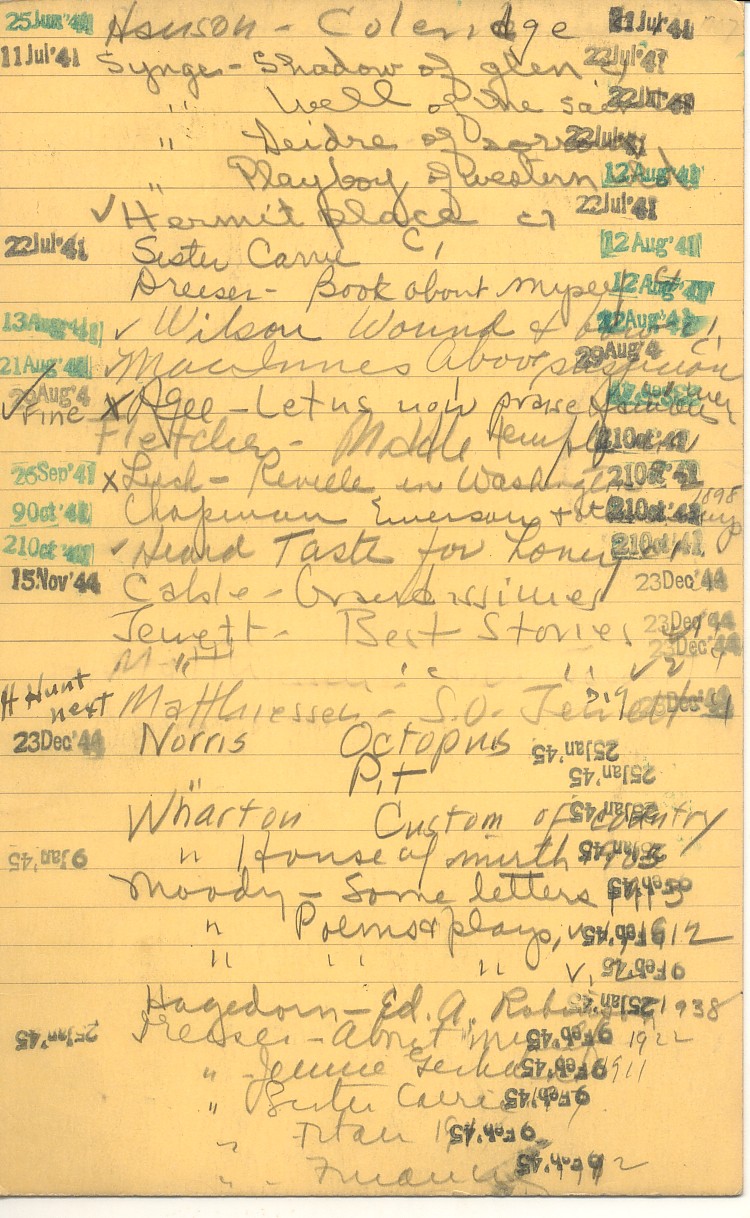 25 Jun '41 Hanson - Coleridge 21 Jul '41
11 Jul '41 Synge - Shadow of glen c1 22 Jul '41
" Well of the 22 Jul '41
" Deidre of 22 Jul '41
" Playboy of western 12 Aug '41
✓ Hermit place c1 22 Jul '41
22 Jul '41 Sister Carrie C1 12 Aug '41
Dreiser - Book about myself 12 Aug '41
13 Aug '41 ✓ Wilson Wound & c1
21 Aug '41 ✓ MacInnes Above suspicion 29 Aug '4
✓ Fine 29 Aug '4 x Agee - Let us now praise famous
Fletcher - Middle Temple 21 Oct '41
26 Sep '41 x Leech - Reveille in Washington 21 Oct '41
9 Oct '41 Chapman Emerson + 21 Oct '41 1898
21 Oct '41 ✓ Heard Taste for honey 21 Oct '41
15 Nov '44 Cable - Grandissimes 23 Dec '44
Jewett - Best Stories 23 Dec '44
" " 23 Dec '44
H Hunt next Matthiessen - S.O. Jewett Dec '4
23 Dec '44 Norris Octopus 25 Jan '45
" Pit 25 Jan '45
Wharton Custom of country 25 Jan '45
9 Jan '45 " House of mirth 25 Jan '45
Moody - Some letters 9 Feb '45
" Poems & plays, v. 1912 9 Feb '45
" " " v. 9 Feb '45
Hagedorn - Ed. A. Robinson 1938 25 Jan '45
25 Jan '45 Dreiser - About myself 1922 9 Feb '45
" - Jennie Gerhardt 1911 9 Feb '45
" Sister Carrie 9 Feb '45
" Titan 9 Feb '45
" Financier 9 Feb '45